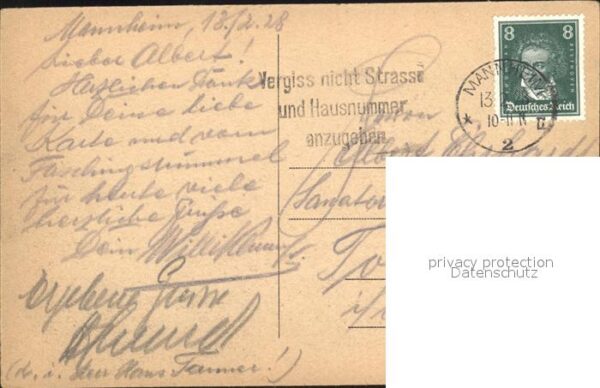 Mannheim, 13./2.28
Lieber Albert!
Herzlichen Dank
für Deine liebe
Karte und vom
Faschingsrummel
für heute viele
herzliche Grüße
Dein Willi
Ergebene Grüsse
(d. i. Herr Hans Tanner!)
Vergiss nicht Strasse
und Hausnummer
anzugeben
8 8
Deutsches Reich
MANNHEIM
13.2.28
2
Herrn
Albert
Sanator
i/
privacy protection
Datenschutz